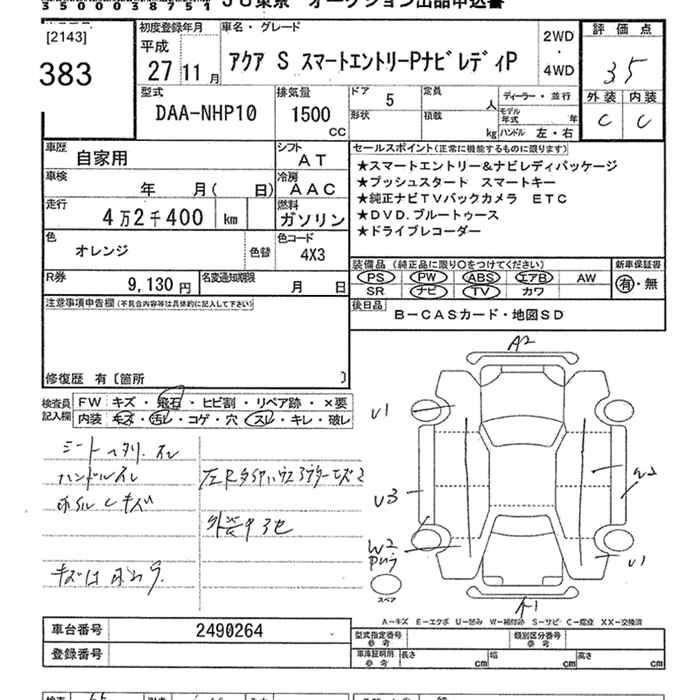 JU東京 オークション出品申込書
[2143]
383
初度登録年月
平成
27 11月
車名・グレード
アクア S スマートエントリーPナビレディP
2WD
・
4WD
評価点
35
外装 内装
C C
型式
DAA-NHP10
排気量
1500
cc
ドア 5
定員
人
形状
積載
kg
ディーラー・並行
モデル年式
年
ハンドル 左・右
車歴
自家用
シフト
AT
車検
年 月( 日)
冷房
AAC
走行
4万2千400 km
燃料
ガソリン
色
オレンジ
色替
色コード
4X3
R券
9,130円
名変通知期限
月 日
セールスポイント(正常に機能するものに限ります)
★スマートエントリー&ナビレディパッケージ
★プッシュスタート スマートキー
★純正ナビTVバックカメラ ETC
★DVD.ブルートゥース
★ドライブレコーダー
装備品(純正品に限り○をつけてください)
PS PW ABS エアB AW
SR ナビ TV カワ
新車保証書
有・無
後日品
B-CASカード・地図SD
注意事項申告欄(不具合内容等は具体的に記入して下さい)
修復歴 有〔箇所 〕
検査員記入欄
FW キズ・飛石・ヒビ割・リペア跡・×要
内装 キズ・汚レ・コゲ・穴・スレ・キレ・破レ
シートヘタリ.スレ
ハンドルスレ
ホイルCキズ
A2
U1
U3
W2
U1
A1
スペア
A-キズ E-エクボ U-凹み W-補修跡 S-サビ C-腐食 XX-交換済
車台番号 2490264
登録番号
型式指定番号 参考
類別区分番号 参考
車庫証明用 参考 長さ cm 幅 cm 高さ cm